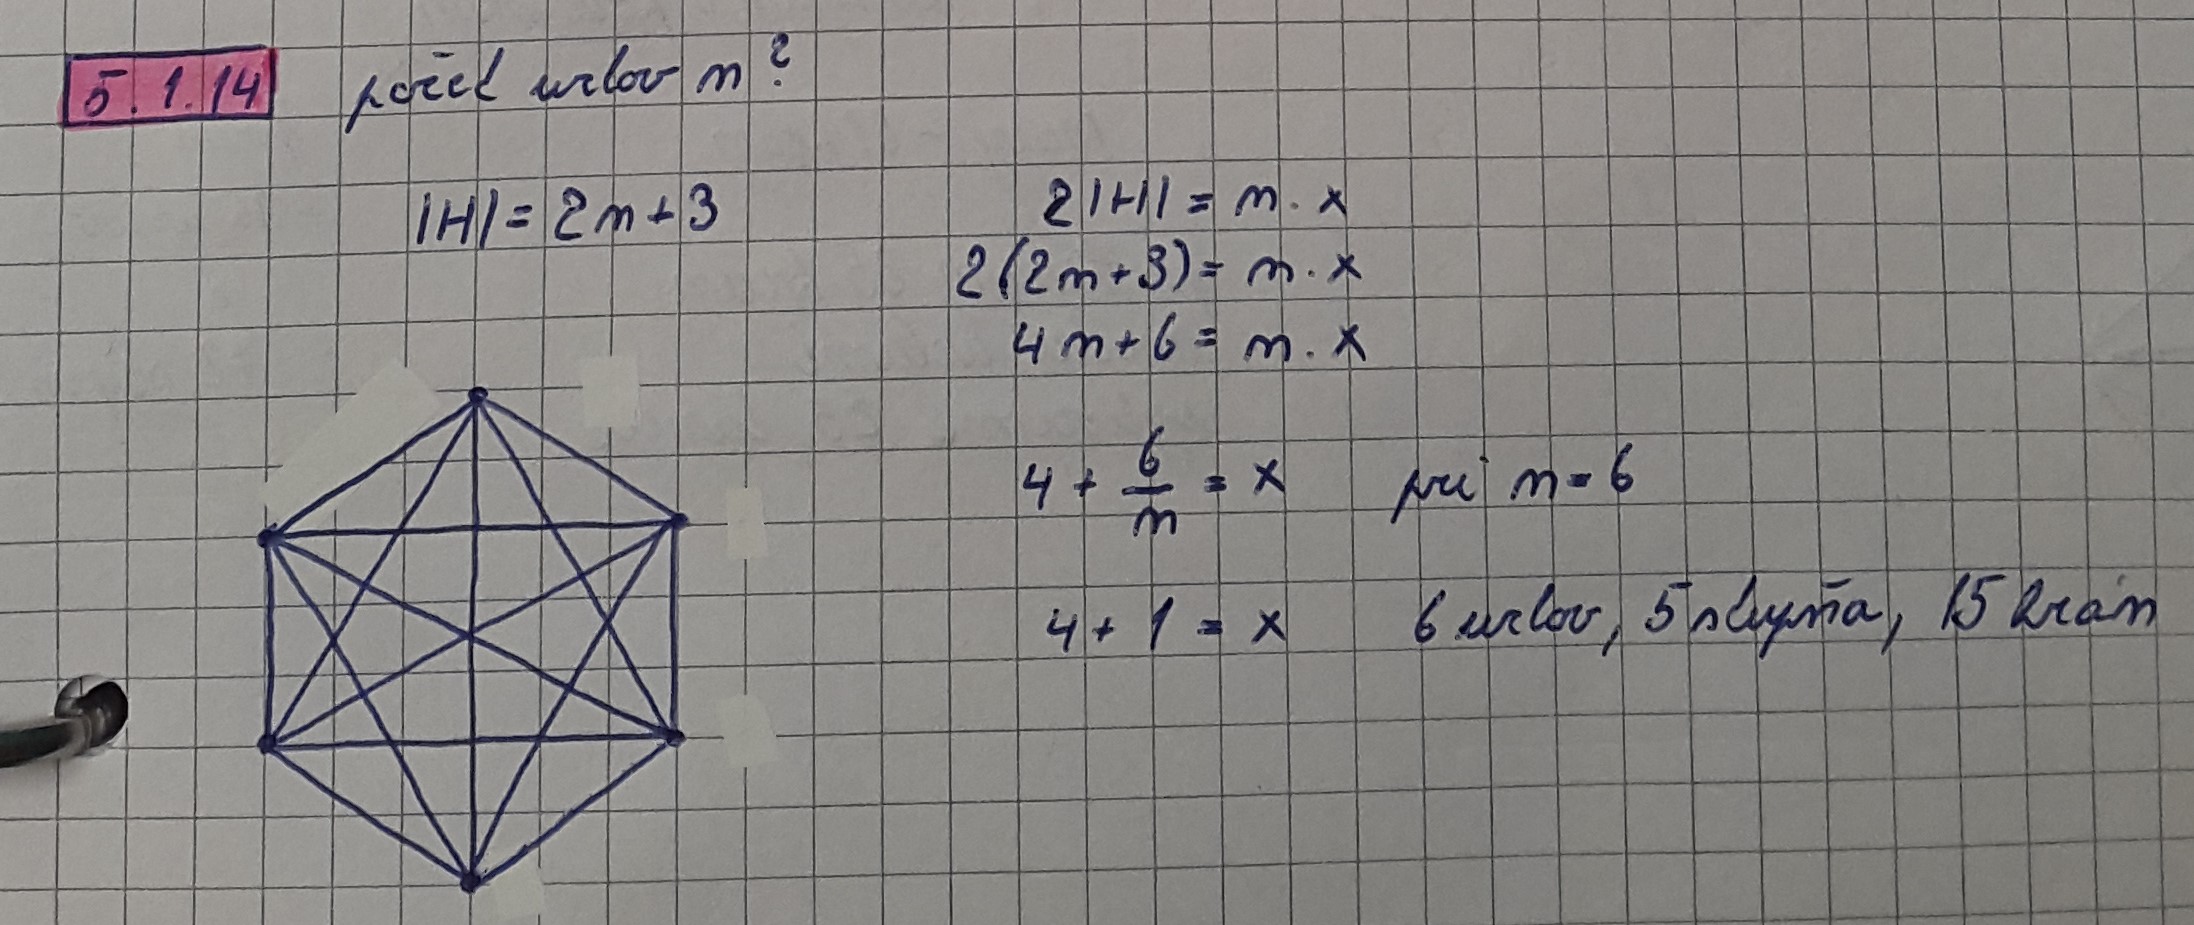 5.1.14 počet uzlov n?
|H| = 2n+3
2|H| = n. x
2(2n+3) = n. x
4n+6 = n. x
4 + 6/n = x pri n=6
4 + 1 = x 6 uzlov, 5 stupňa, 15 hrán